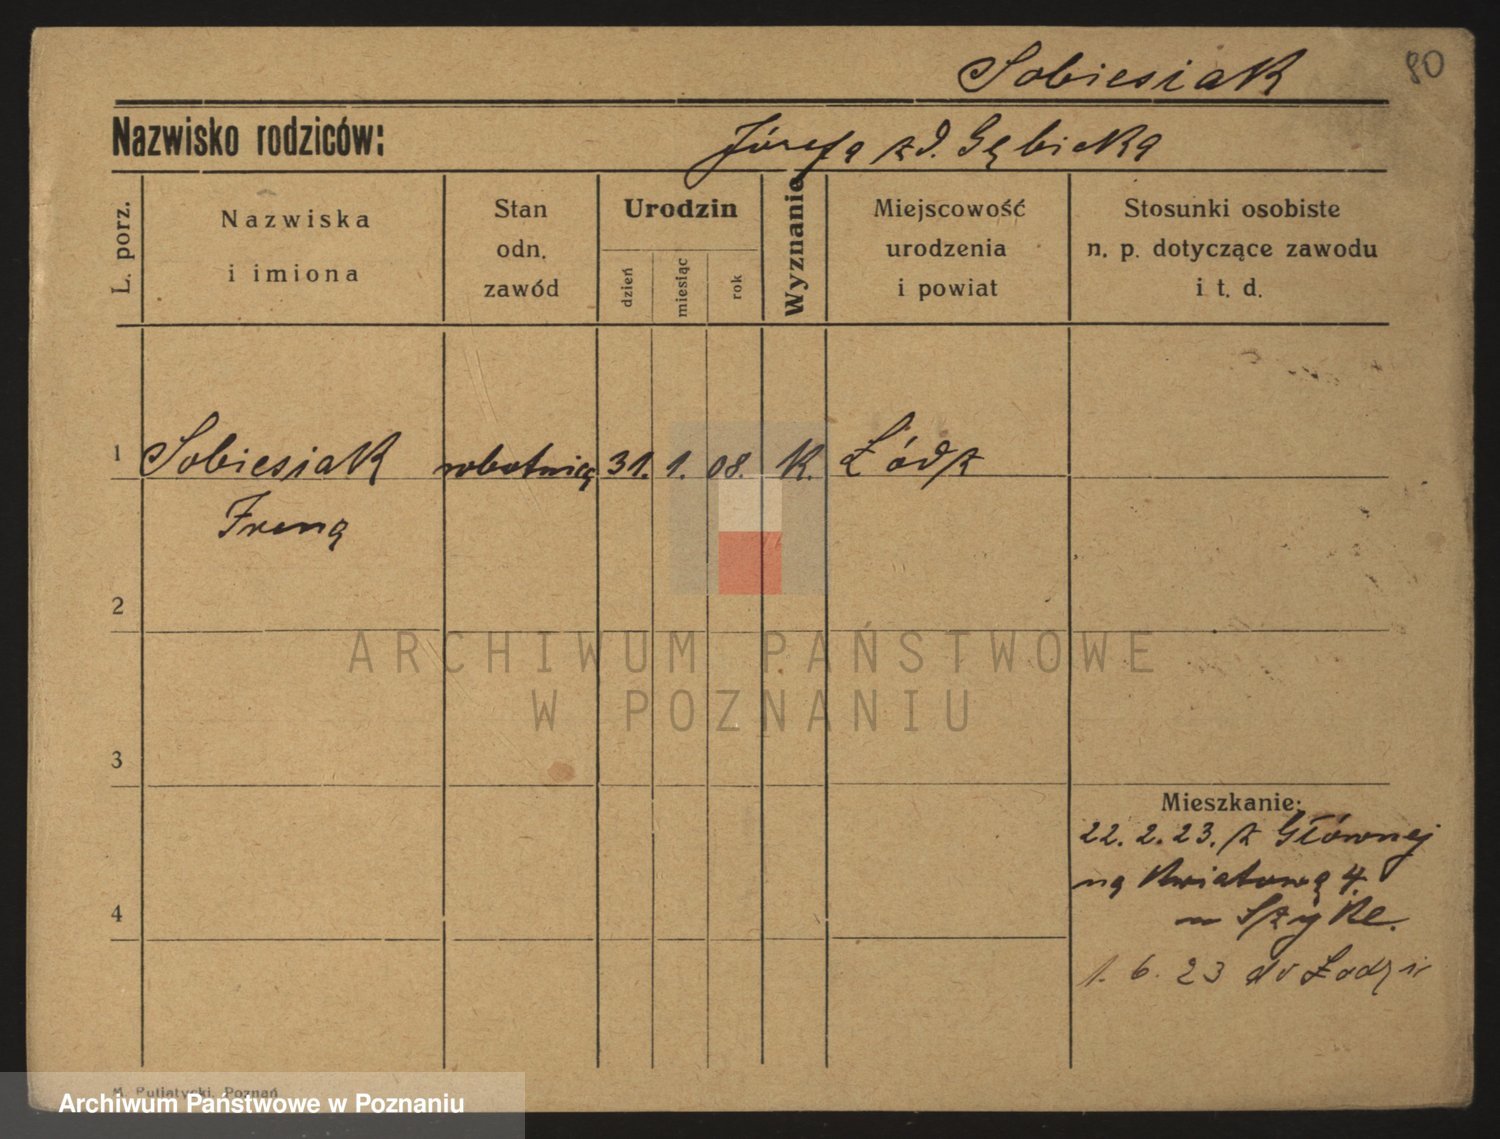 Sobiesiak
80
Nazwisko rodziców:
Józefa z d. Gębicka
L. porz.
Nazwiska
i imiona
Stan
odn.
zawód
Urodzin
dzień
miesiąc
rok
Wyznanie
Miejscowość
urodzenia
i powiat
Stosunki osobiste
n. p. dotyczące zawodu
i t. d.
1
Sobiesiak
robotnica
31.
1.
08.
K.
Łódź
Irena
2
ARCHIWUM PAŃSTWOWE
W POZNANIU
3
Mieszkanie:
22. 2. 23. z Głównej
na Kwiatową 4.
1. 6. 23 do Łodzi
4
M. Putiatycki, Poznań
Archiwum Państwowe w Poznaniu